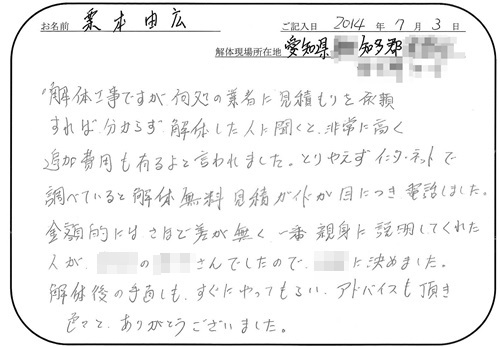 お名前 栗本由広 ご記入日 2014年7月3日
解体現場所在地 愛知県 知多郡
解体工事ですが何処の業者に見積もりを依頼
すれば分からず解体した人に聞くと、非常に高く
追加費用も有るよと言われました。とりやえずインターネットで
調べていると解体無料見積ガイドが目につき電話しました。
金額的にはさほど差が無く、一番親身に説明してくれた
人が、 の さんでしたので、 に決めました。
解体後の手直しも、すぐにやってもらい、アドバイスも頂き
色々と、ありがとうございました。